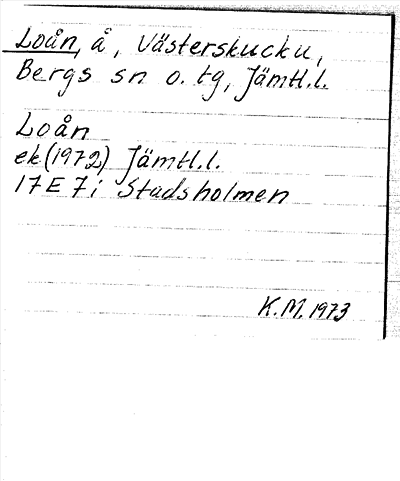 Loån, å, Västerskucku,
Bergs sn o. tg, Jämtl.l.
Loån
ek (1972) Jämtl.l.
17E 7i Stadsholmen
K.M. 1973